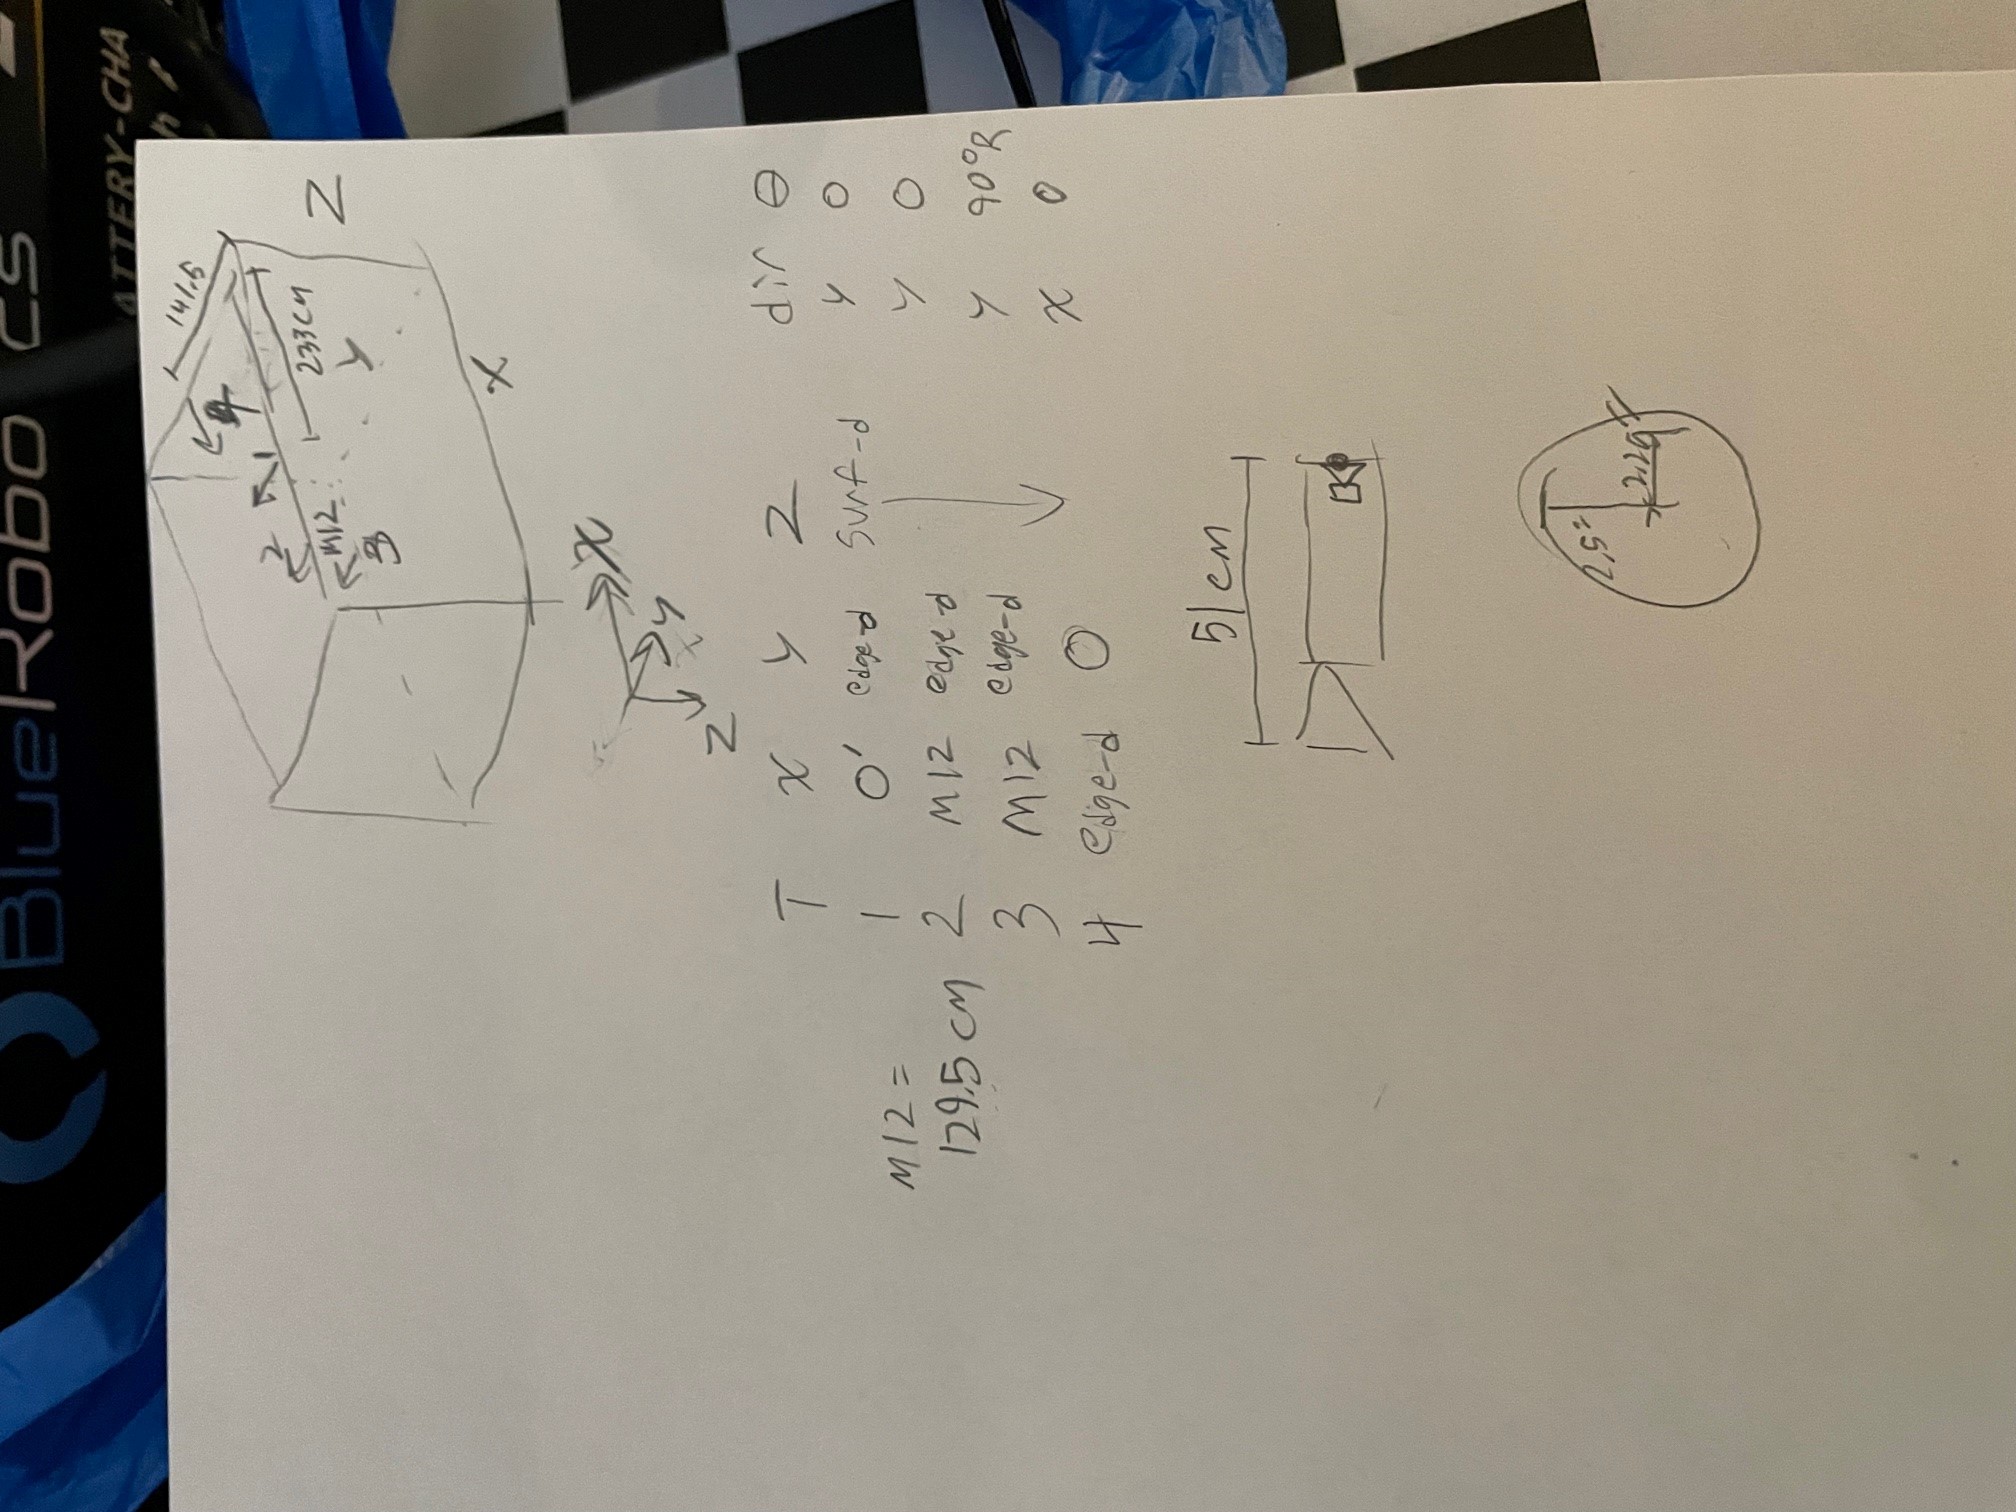 BlueRobotics
BATTERY-CHA
141.5
Z
4
1
233cm
Y
2
M12
3
X
X
Y
Z
T X Y Z dir θ
1 0' edge-d surf-d Y 0
2 M12 edge-d Y 0
3 M12 edge-d Y 90°R
4 edge-d 0 X 0
M12 =
129.5 cm
51cm
2.5"